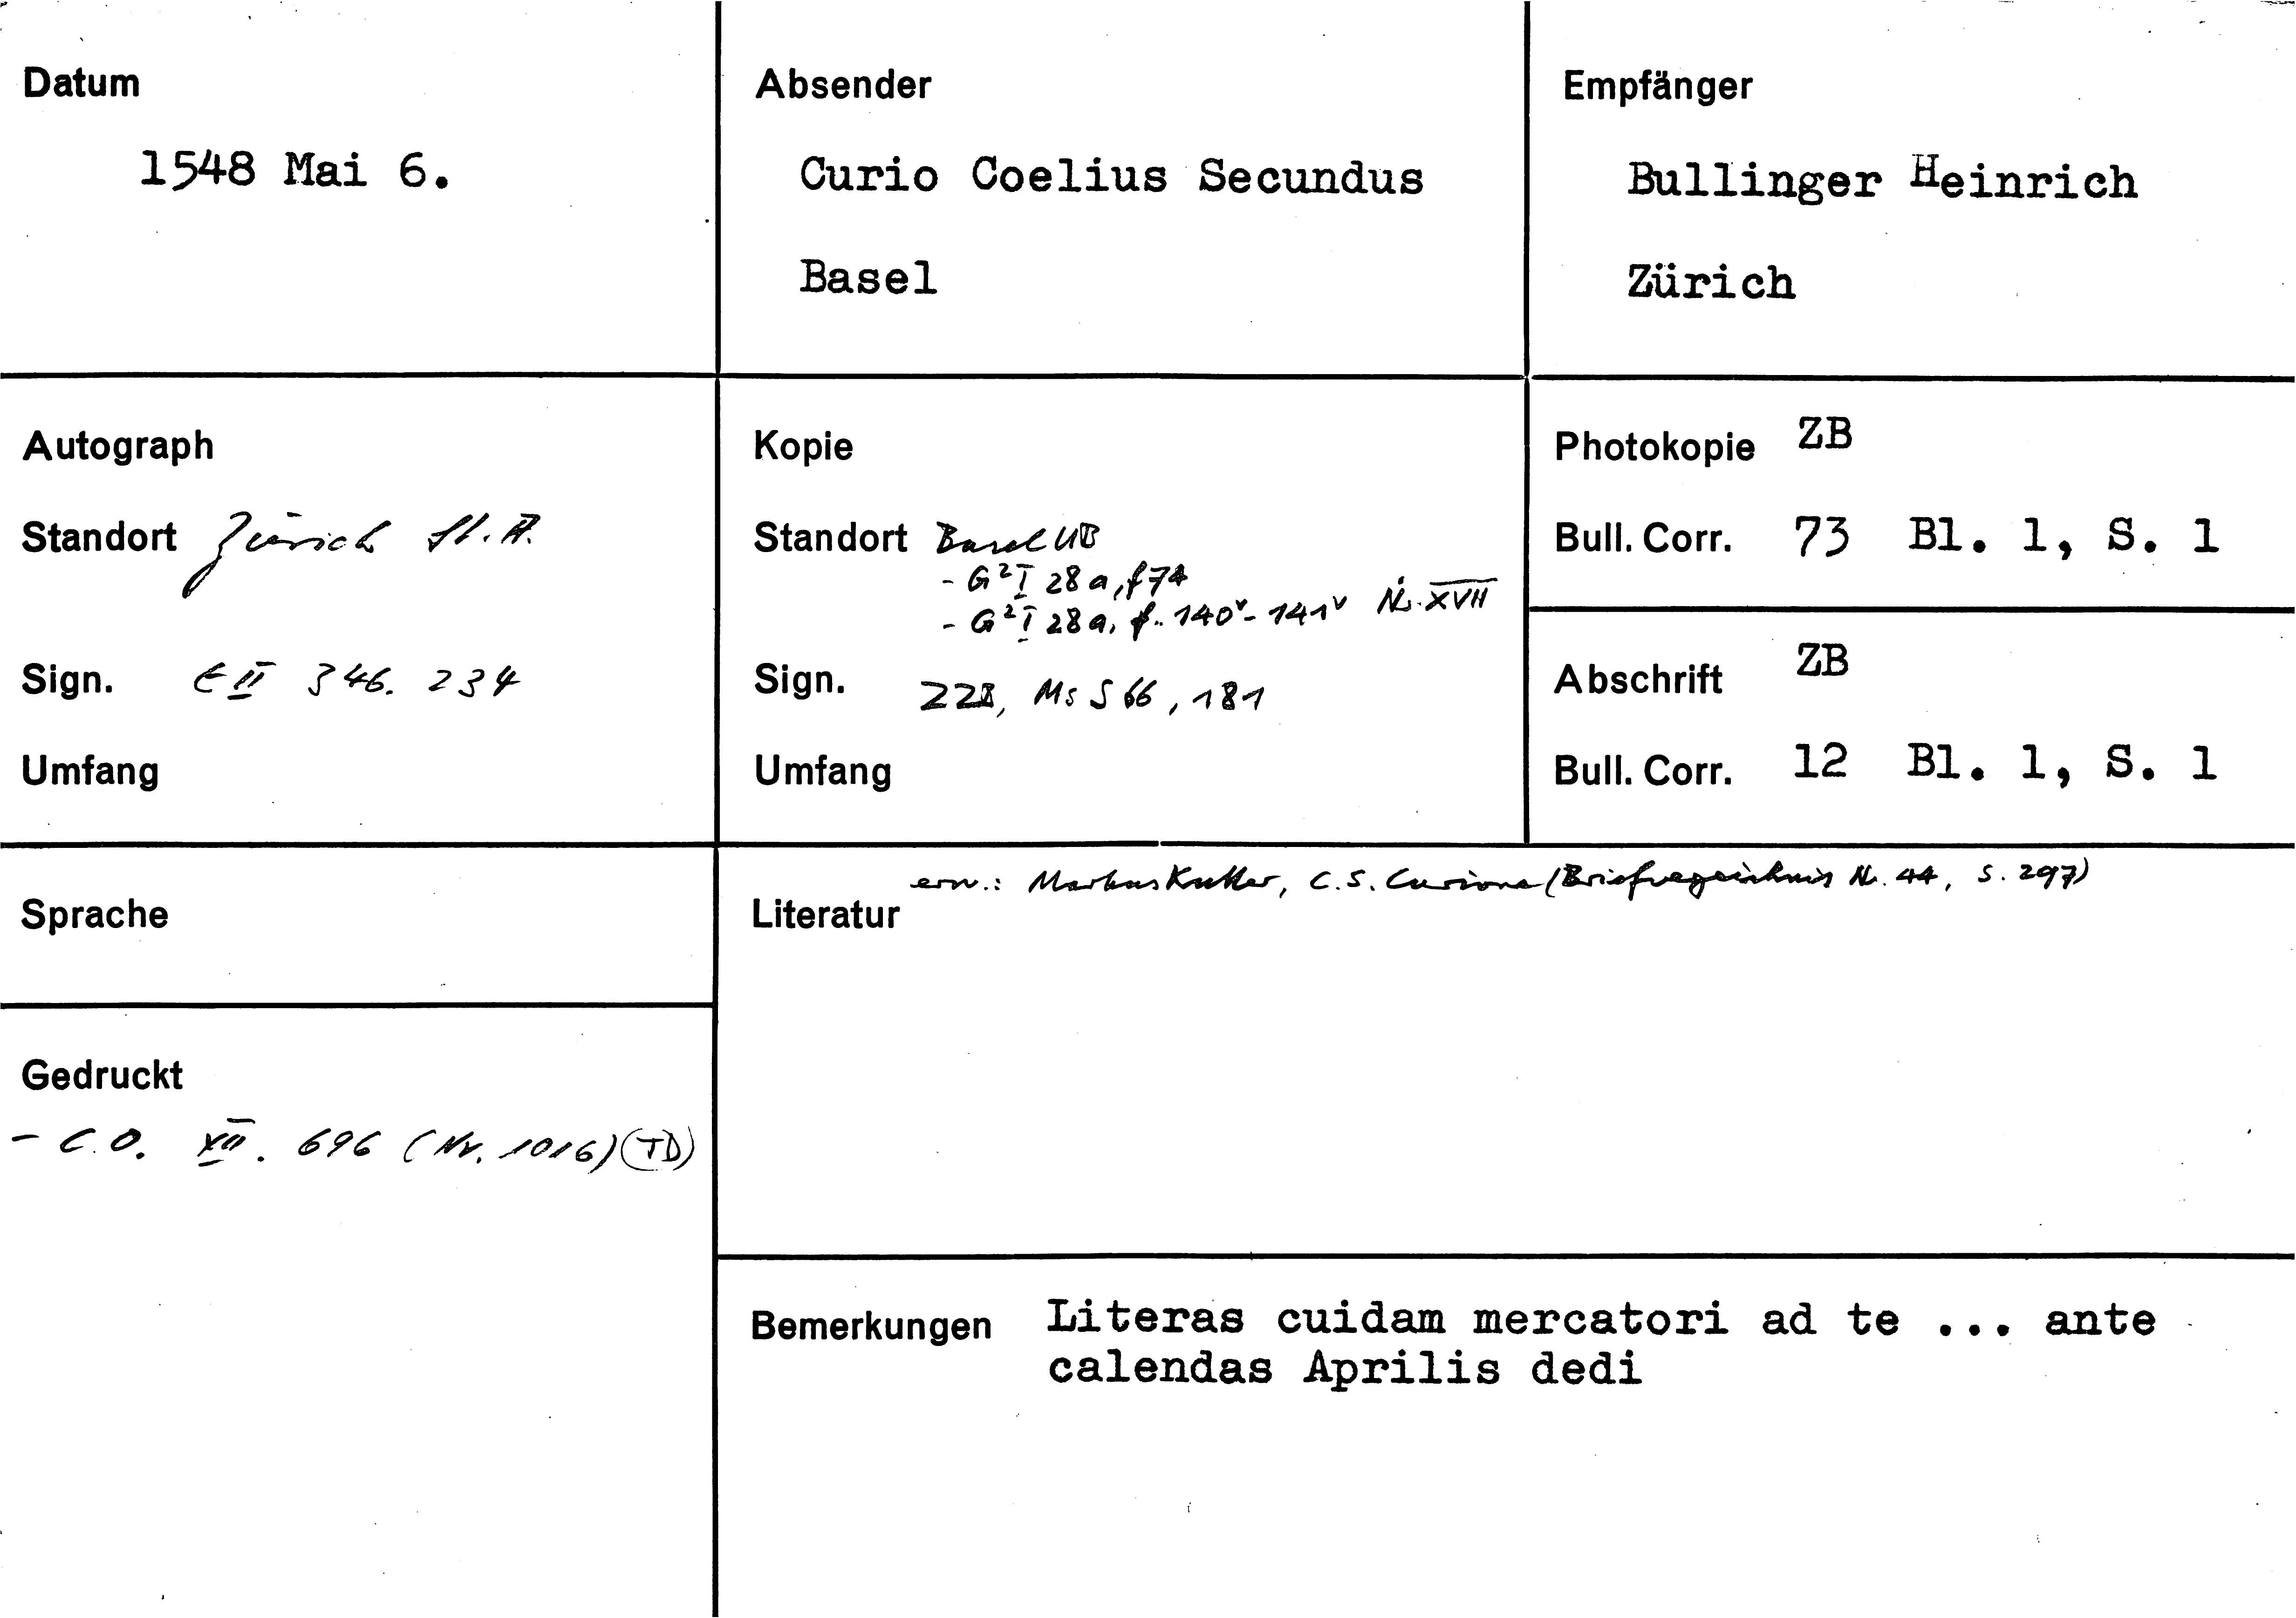 Datum
1548 Mai 6.
Absender
Curio Coelius Secundus
Basel
Empfänger
Bullinger Heinrich
Zürich
Autograph
Standort Zürich St. A.
Sign. E II 346. 234
Umfang
Kopie
Standort Basel UB
- G² I 28 a, f 74
- G² I 28 a, f. 140ᵛ - 141ᵛ Nr. XVII
Sign. ZZB, Ms S 66, 181
Umfang
Photokopie ZB
Bull. Corr. 73 Bl. 1, S. 1
Abschrift ZB
Bull. Corr. 12 Bl. 1, S. 1
Sprache
Gedruckt
- C. O. XII. 696 (Nr. 1016) (TD)
erw.: Markus Kutter, C. S. Curione (Briefverzeichnis Nr. 44, S. 297)
Literatur
Bemerkungen Literas cuidam mercatori ad te ... ante
calendas Aprilis dedi